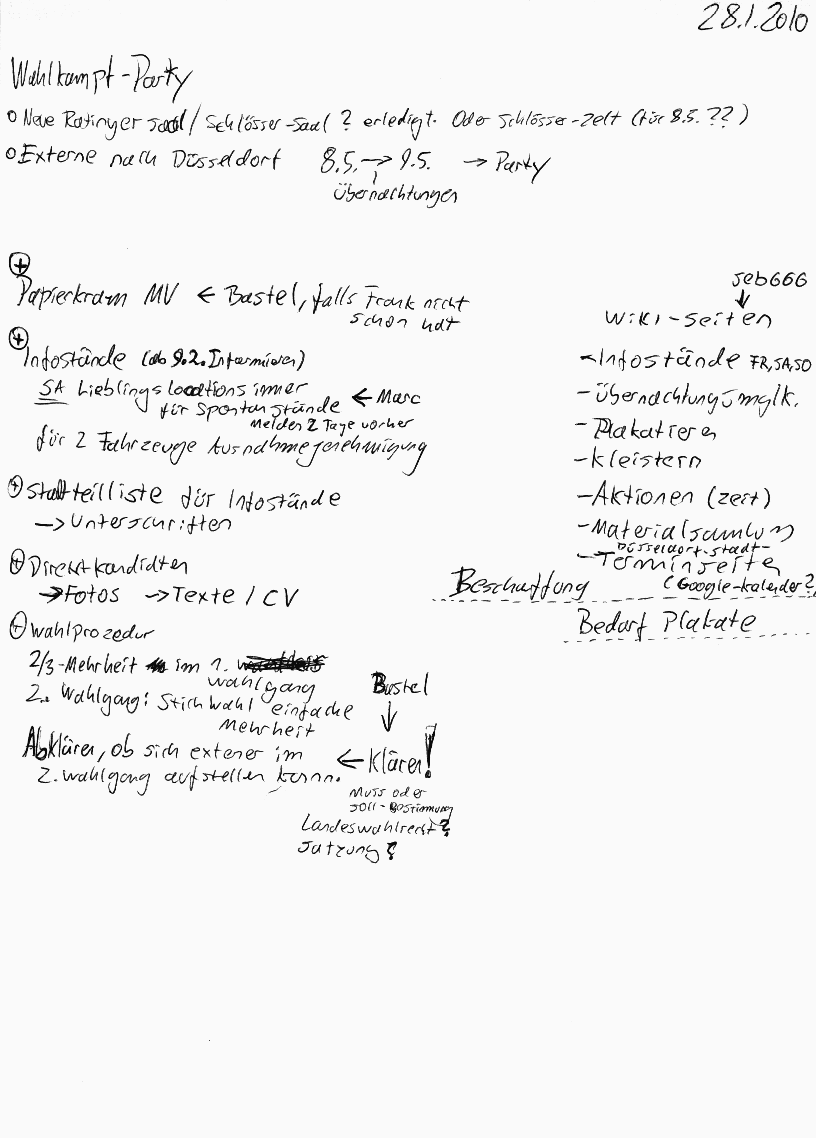 28.1.2010
Wahlkampf-Party
o Neue Ratinger Saal / Schlösser-Saal ? erledigt. Oder Schlösser-Zelt (für 8.5. ??)
o Externe nach Düsseldorf 8.5. → 9.5. → Party
Übernachtungen
Papierkram MV ← Bastel, falls Frank nicht
schon hat
Infostände (ab 9.2. Intermieren)
SA Lieblingslocations immer
für Spontan Stände ← Marc
melden 2 Tage vorher
für 2 Fahrzeuge Ausnahmegenehmigung
Stadtteilliste für Infostände
→ Unterschriften
Direktkandidaten
→ Fotos → Texte / CV
Wahlprozedur
2/3-Mehrheit im 1.
Wahlgang
2. Wahlgang: Stichwahl einfache
Mehrheit
Abklären, ob sich externer im
2. Wahlgang aufstellen kann.
Bastel
↓
← Klären!
Muss oder
Soll-Bestimmung
Landeswahlrecht ?
Satzung ?
seb666
↓
Wiki-Seiten
- Infostände FR, SA, SO
- Übernachtungsmglk.
- Plakatieren
- Kleistern
- Aktionen (Zeit)
- Materialsammlung
Düsseldorf-Stadt-
- Terminseite
(Google-Kalender?)
Beschaffung
Bedarf Plakate